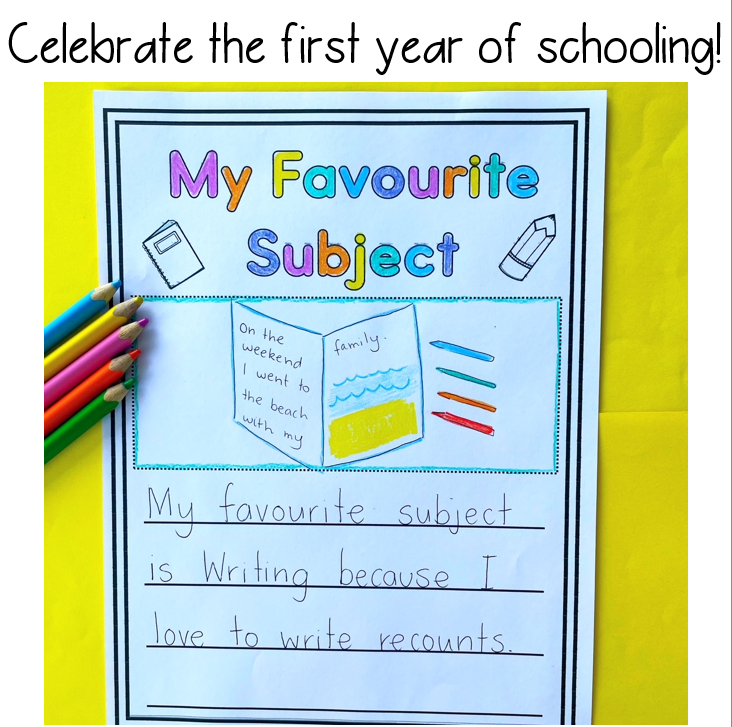 Celebrate the first year of schooling!
My Favourite
Subject
On the
weekend
I went to
the beach
with my
family.
My favourite subject
is Writing because I
love to write recounts.